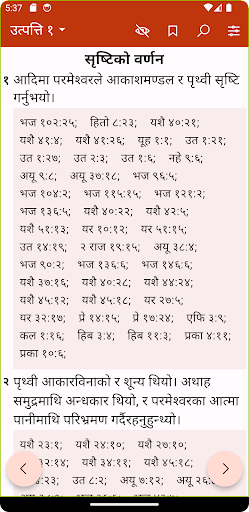 5:37
उत्पत्ति १
सृष्टिको वर्णन
१ आदिमा परमेश्वरले आकाशमण्डल र पृथ्वी सृष्टि
गर्नुभयो।
भज १०२:२५; हितो ८:२३; यशै ४०:२१;
यशै ४१:४; यशै ४१:२६; यूह १:१; उत १:२१;
उत १:२७; उत २:३; उत १:६; नहे ९:६;
अयू ९:८; अयू ३७:१८; भज ९६:५;
भज १०४:२; भज ११५:१५; भज १२१:२;
भज १३६:५; यशै ४०:२२; यशै ४२:५;
यशै ५१:१३; यर १०:१२; यर ५१:१५;
उत १४:१९; २ राज १९:१५; अयू ३८:४;
भज ९०:२; भज १३६:६; भज १४६:६;
यशै ३७:१६; यशै ४०:२८; यशै ४४:२४;
यशै ४५:१२; यशै ४५:१८; यर २७:५;
यर ३२:१७; प्रे १४:१५; प्रे १७:२४; एफि ३:९;
कल १:१६; हिब ३:४; हिब ११:३; प्रका ४:११;
प्रका १०:६;
२ पृथ्वी आकारविनाको र शून्य थियो। अथाह
समुद्रमाथि अन्धकार थियो, र परमेश्वरका आत्मा
पानीमाथि परिभ्रमण गर्दैरहनुहुन्थ्यो।
यशै २३:१; यशै २४:१०; यशै २७:१०;
३२:१४; यशै ३४:११; यशै ४५:१८;
४:२३; उत ८:२; अयू ७:१२; अयू २६: